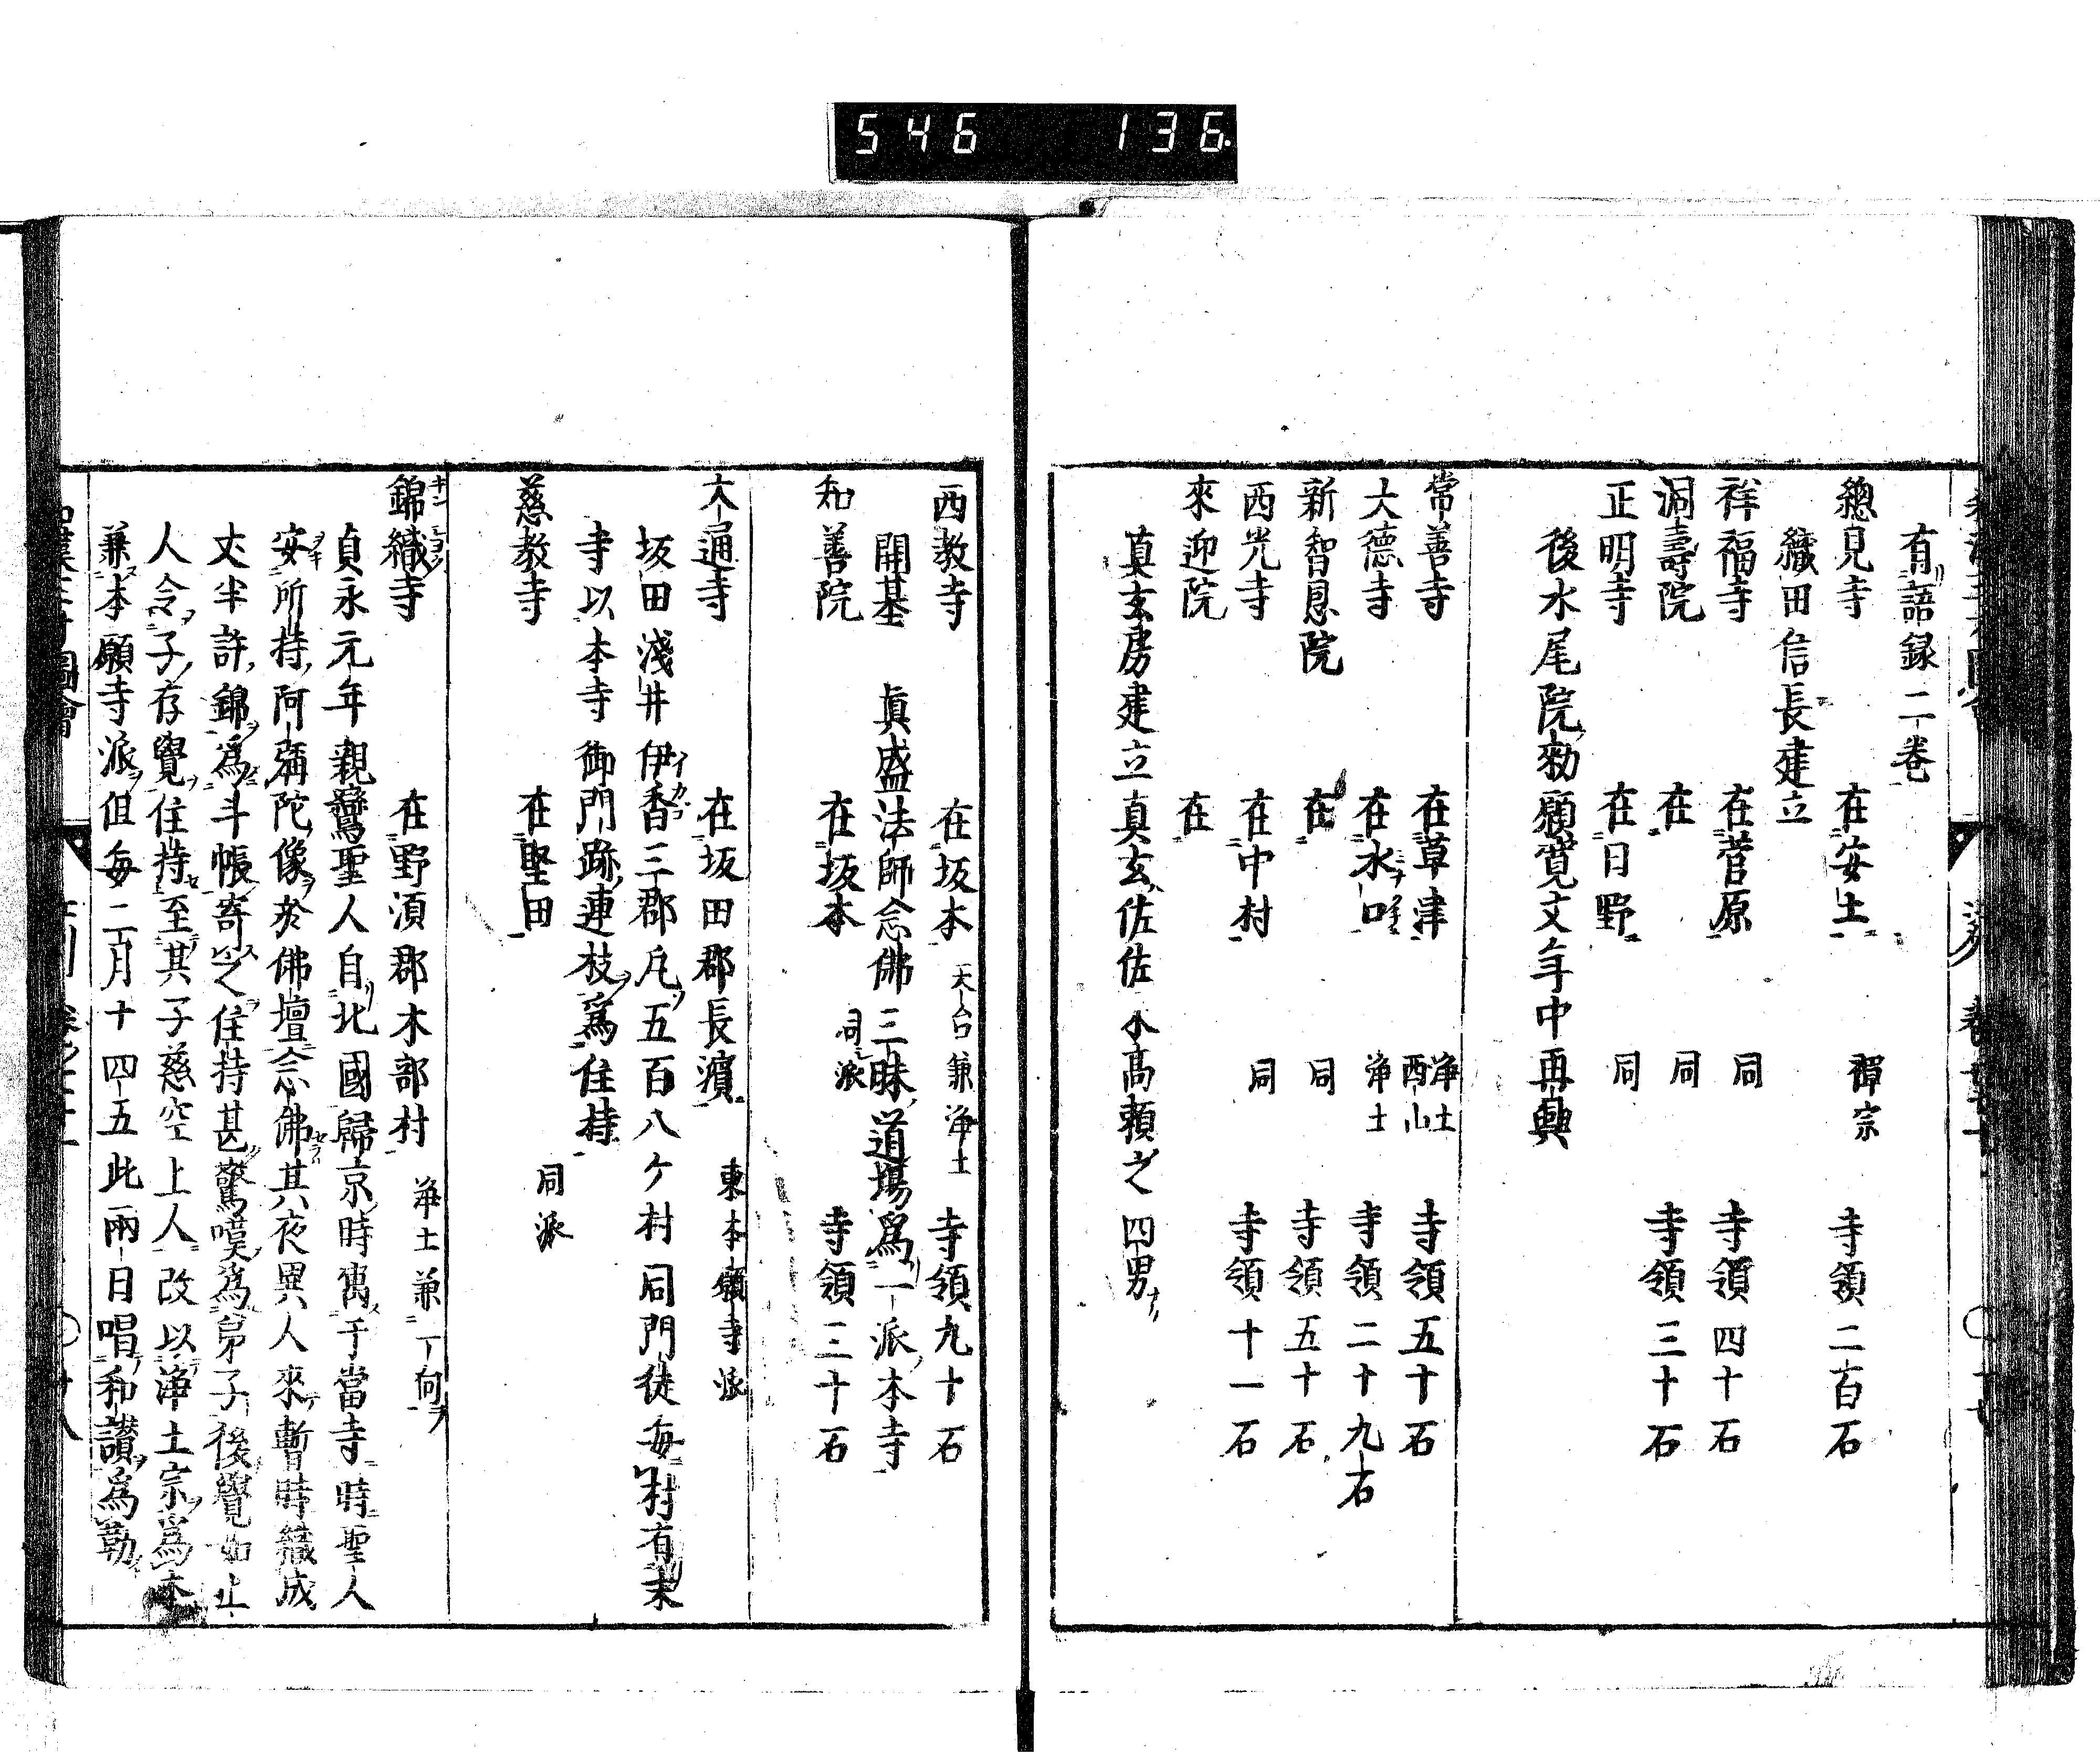 546 136
有語録二巻
總見寺 在安土 禪宗 寺領二百石
織田信長建立
祥福寺 在菅原 同 寺領四十石
洞壽院 在 同 寺領三十石
正明寺 在日野 同
後水尾院勅願寛文年中再興
常善寺 在草津 淨土西山 寺領五十石
大德寺 在水口 淨土 寺領二十九石
新智恩院 在 同 寺領五十石
西光寺 在中村 同 寺領十一石
來迎院 在
真玄房建立真玄佐佐木高頼之四男ナリ
西教寺 在坂本 天台兼淨土 寺領九十石
開基 眞盛法師念佛三昧道場爲一派本寺
知善院 在坂本 同派 寺領三十石
大通寺 在坂田郡長濱 東本願寺派
坂田淺井伊香三郡凡五百八ケ村同門徒毎村有末
寺以本寺御門跡連枝爲住持
慈教寺 在堅田 同派
錦織寺 在野洲郡木部村 淨土兼一向
貞永元年親鸞聖人自北國歸京時寓于當寺時聖人
安所持阿彌陀像於佛壇念佛其夜異人來暫時織成
丈半許錦爲斗帳寄之住持甚驚嘆爲弟子後覺如上
人令子存覺住持至其子慈空上人改以淨土宗爲本
兼本願寺派但毎二月十四五此兩日唱和讃爲勤